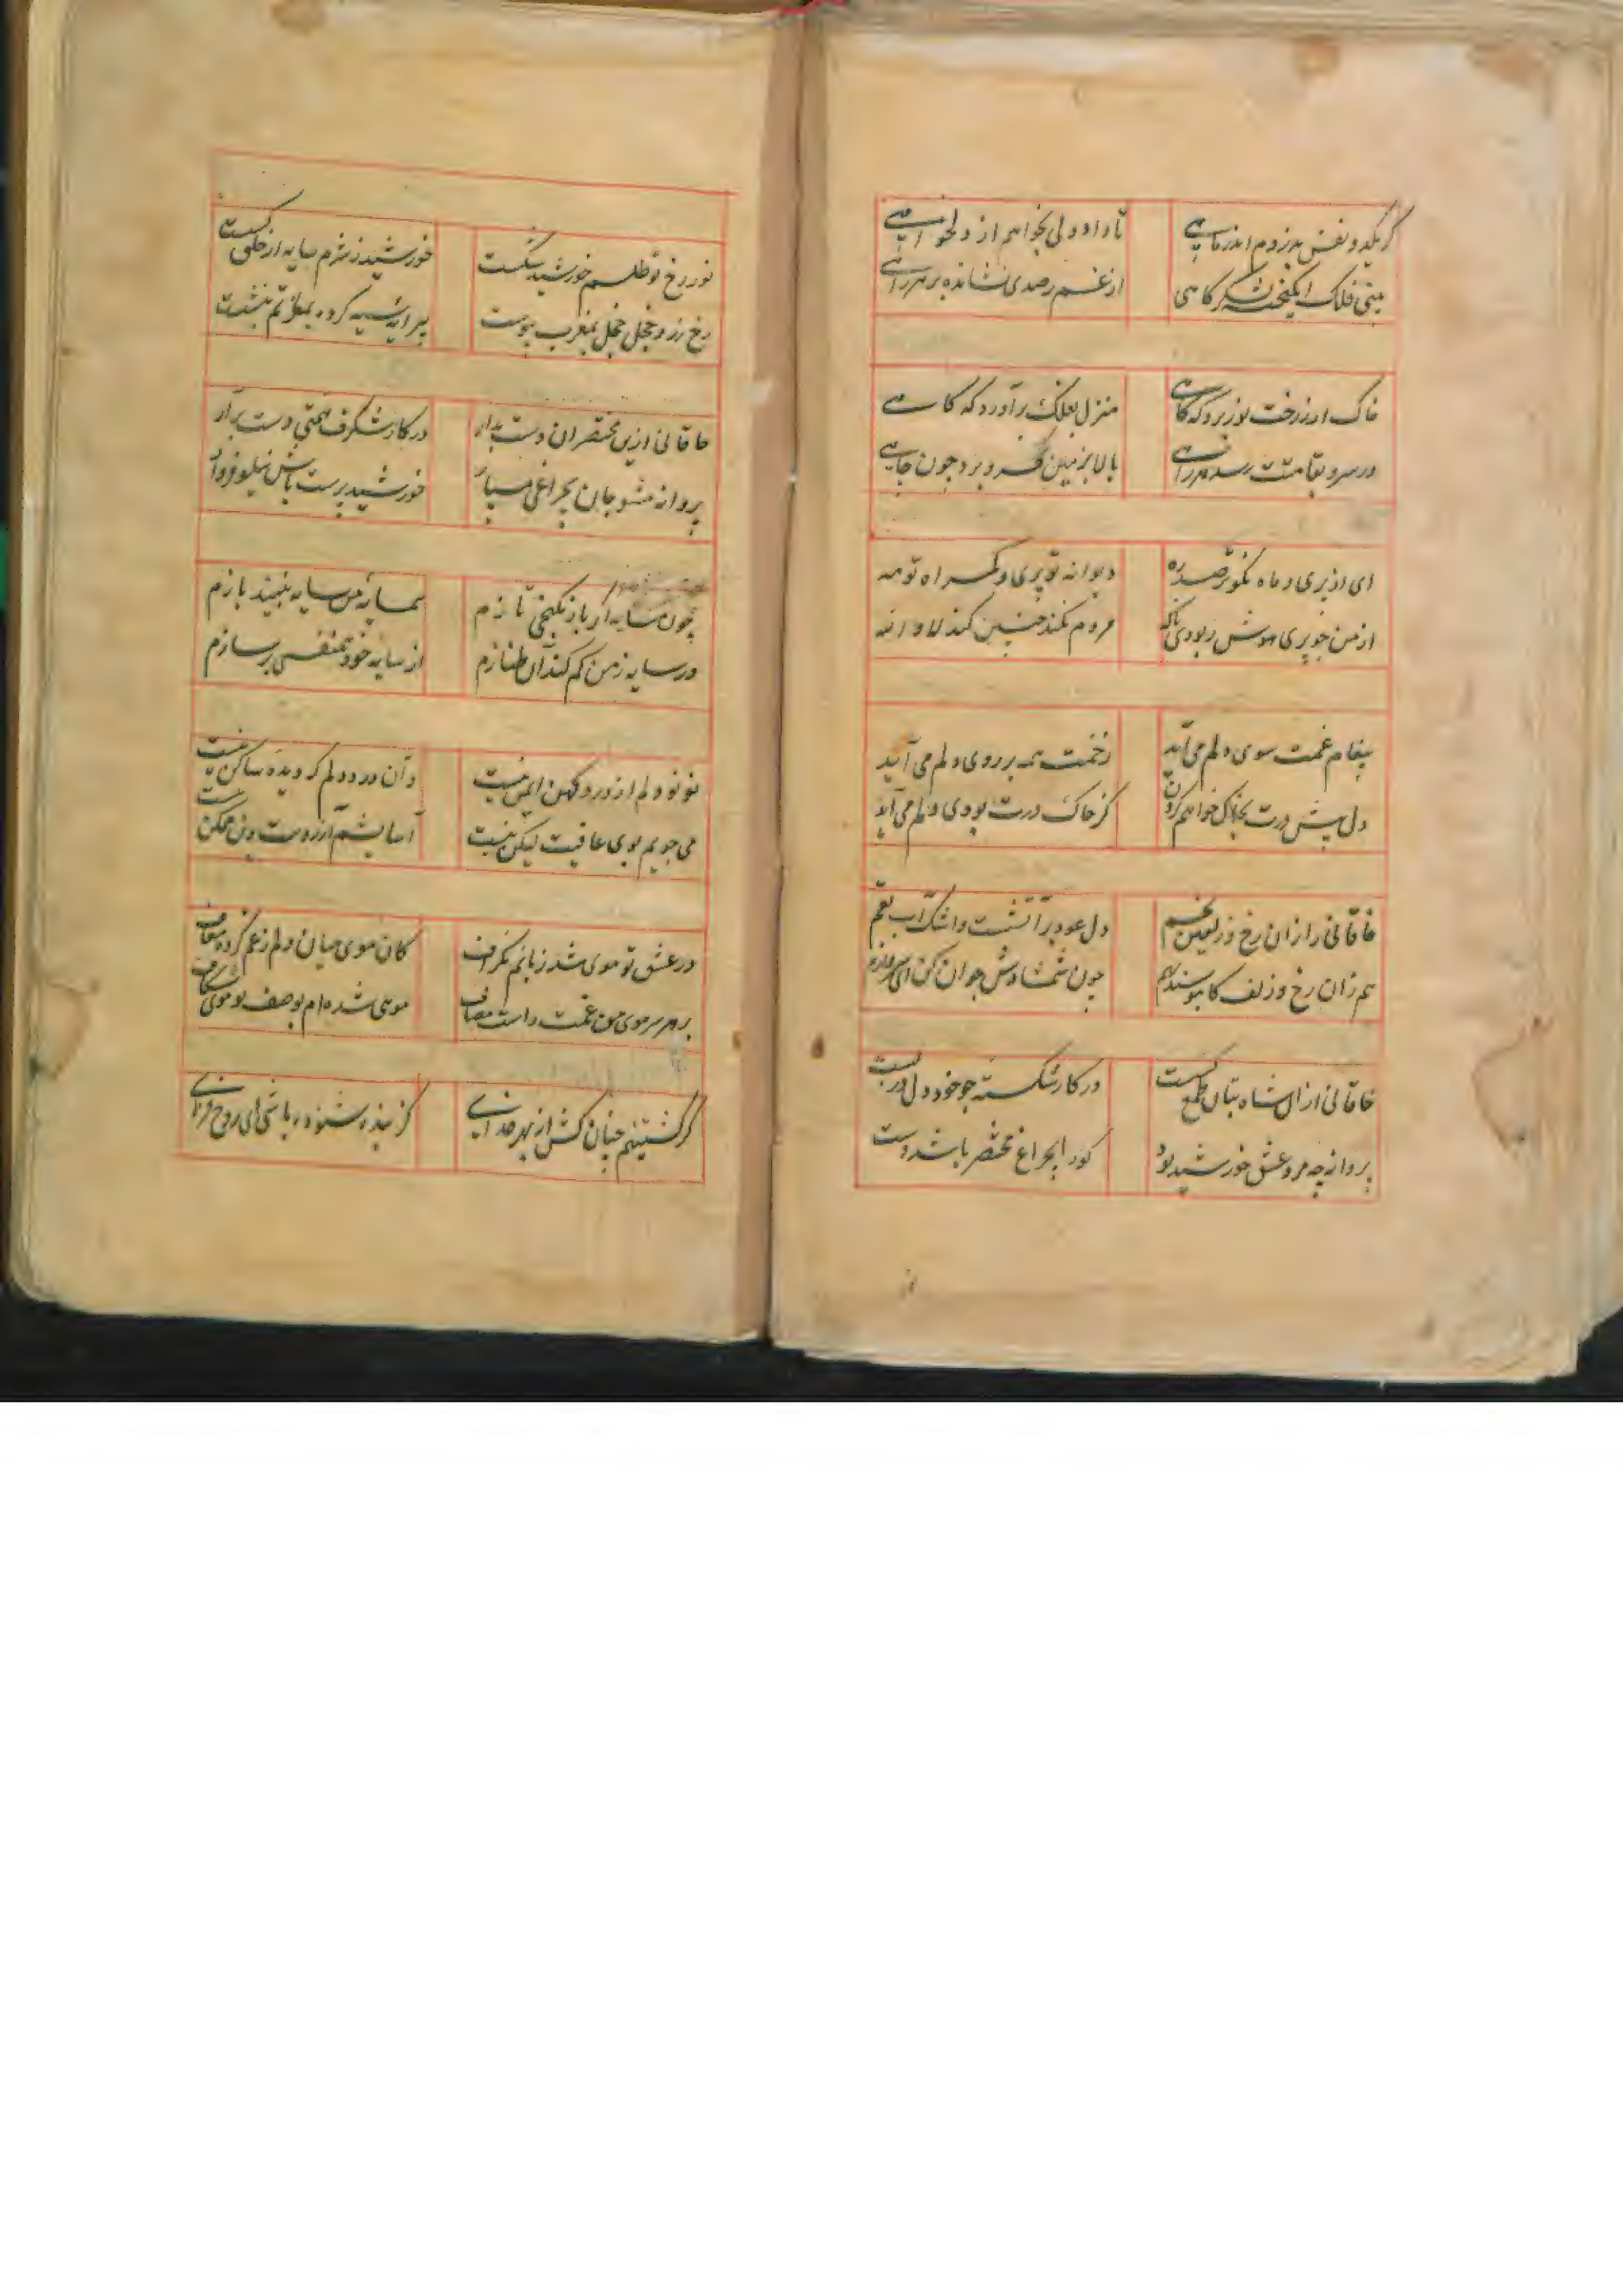 گر یکدو نفس بدزدم اندر ماهی
تا داد دلی بخواهم از دلخواهی
بینی فلک انگیخته لشکرگاهی
از غم رصدی نشانده بر هر راهی
خاک ار ز رخت نور برد گه گاهی
منزل بفلک برآورد گه گاهی
ور سرو بقامتت رسد هر راهی
بالا بزمین فرو برد چون چاهی
ای از پری و ماه نکوتر صد ره
دیوانه تو پری و گمراه تو مه
از من چو پری هوش ربودی ناگه
مردم نکند چنین کند لا والله
پیغام غمت سوی دلم می آید
زخمت همه بر روی دلم می آید
دل پیش درت بخاک خواهم کردن
کز خاک درت بوی دلم می آید
خاقانی را ز آن رخ و زلفین بخم
دل عود بر آتشست و اشک آب بقم
هم زان رخ و زلف کا بنوسند بهم
چون شمشادش جوان کن ای سرو
خاقانی از آن شاه بتان طمع گسست
در کار شکسته چو خود دل در بست
پروانه چه مرد عشق خورشید بود
کورا بچراغ مختصر باشد دست
نور رخ تو طلسم خورشید شکست
خورشید ز شرم سایه از خلق گسست
رخ زرد و خجل خجل بمغرب پیوست
پیرایه سیه کرده بماتم بنشست
خاقانی ازین مختصران دست بدار
در کار شگرف همتی دست برآر
پروانه مشو جان بچراغی مسپار
خورشید پرست باش نیلوفروار
چون سایه اگر باز بکنجی تازم
همسایه من سایه نبیند بازم
ور سایه ز من کم کند آن طنازم
از سایه خود همنفسی بر سازم
نو نو دلم از درد کهن ایمن نیست
و آن درد دلم که دیده ساکن نیست
می جویم بوی عافیت لیکن نیست
آسایشم آرزوست وین ممکن نیست
در عشق تو موی شد زبانم بگزاف
کان موی میان دلم ز غم کرده معاف
بر هر سر موی من غمت راست مصاف
موئی شده ام بوصف تو موی شکاف
گر کشتنیم چنان کش از بهر خدای
کز بنده شنوده باشی ای روح فزای